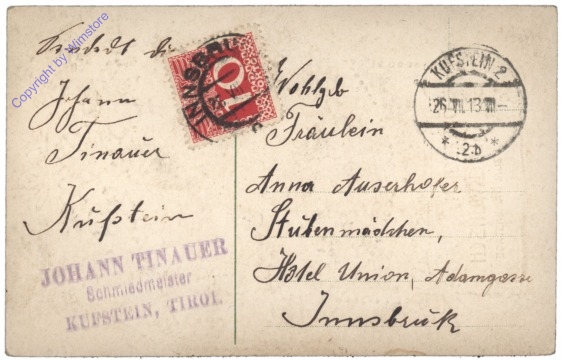 Copyright by Wimstore
Sendet die
Johann
Tinauer
Kufstein
JOHANN TINAUER
Schmiedmeister
KUFSTEIN, TIROL
INNSBR
10
KUFSTEIN 2
26.VII.13
* 2b *
Wohlgeb
Fräulein
Anna Auserhofer
Stubenmädchen,
Hotel Union, Adamgasse
Innsbruck